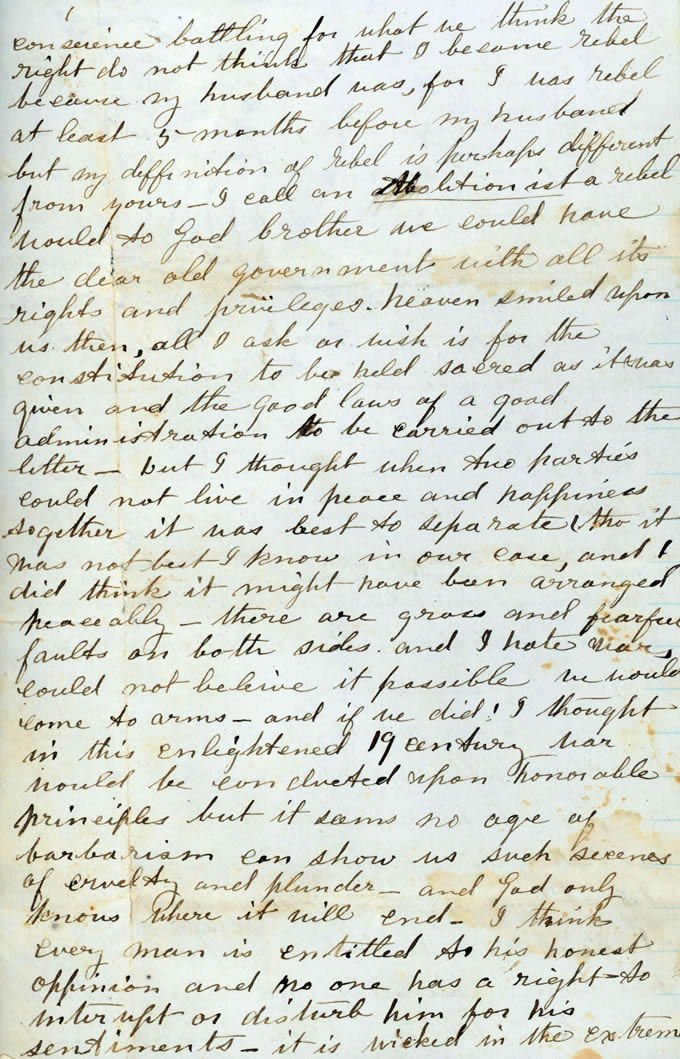 conscience battling for what we think the
right do not think that I became rebel
because my husband was, for I was rebel
at least 5 months before my husband
but my deffinition of rebel is perhaps different
from yours - I call an Abolitionist a rebel
would to God brother we could have
the dear old government with all its
rights and privileges. heaven smiled upon
us then, all I ask or wish is for the
constitution to be held sacred as it was
given and the good laws of a good
administration to be carried out to the
letter - but I thought when two parties
could not live in peace and happiness
together it was best to separate, tho it
was not best I know in our case, and I
did think it might have been arranged
peaceably - there are gross and fearful
faults on both sides. and I hate war,
could not beleive it possible we would
come to arms - and if we did! I thought
in this enlightened 19 century war
would be conducted upon honorable
principles but it seems no age of
barbarism can show us such scenes
of cruelty and plunder - and God only
knows where it will end - I think
every man is entitled to his honest
oppinion and no one has a right to
interupt or disturb him for his
sentiments - it is wicked in the extreme